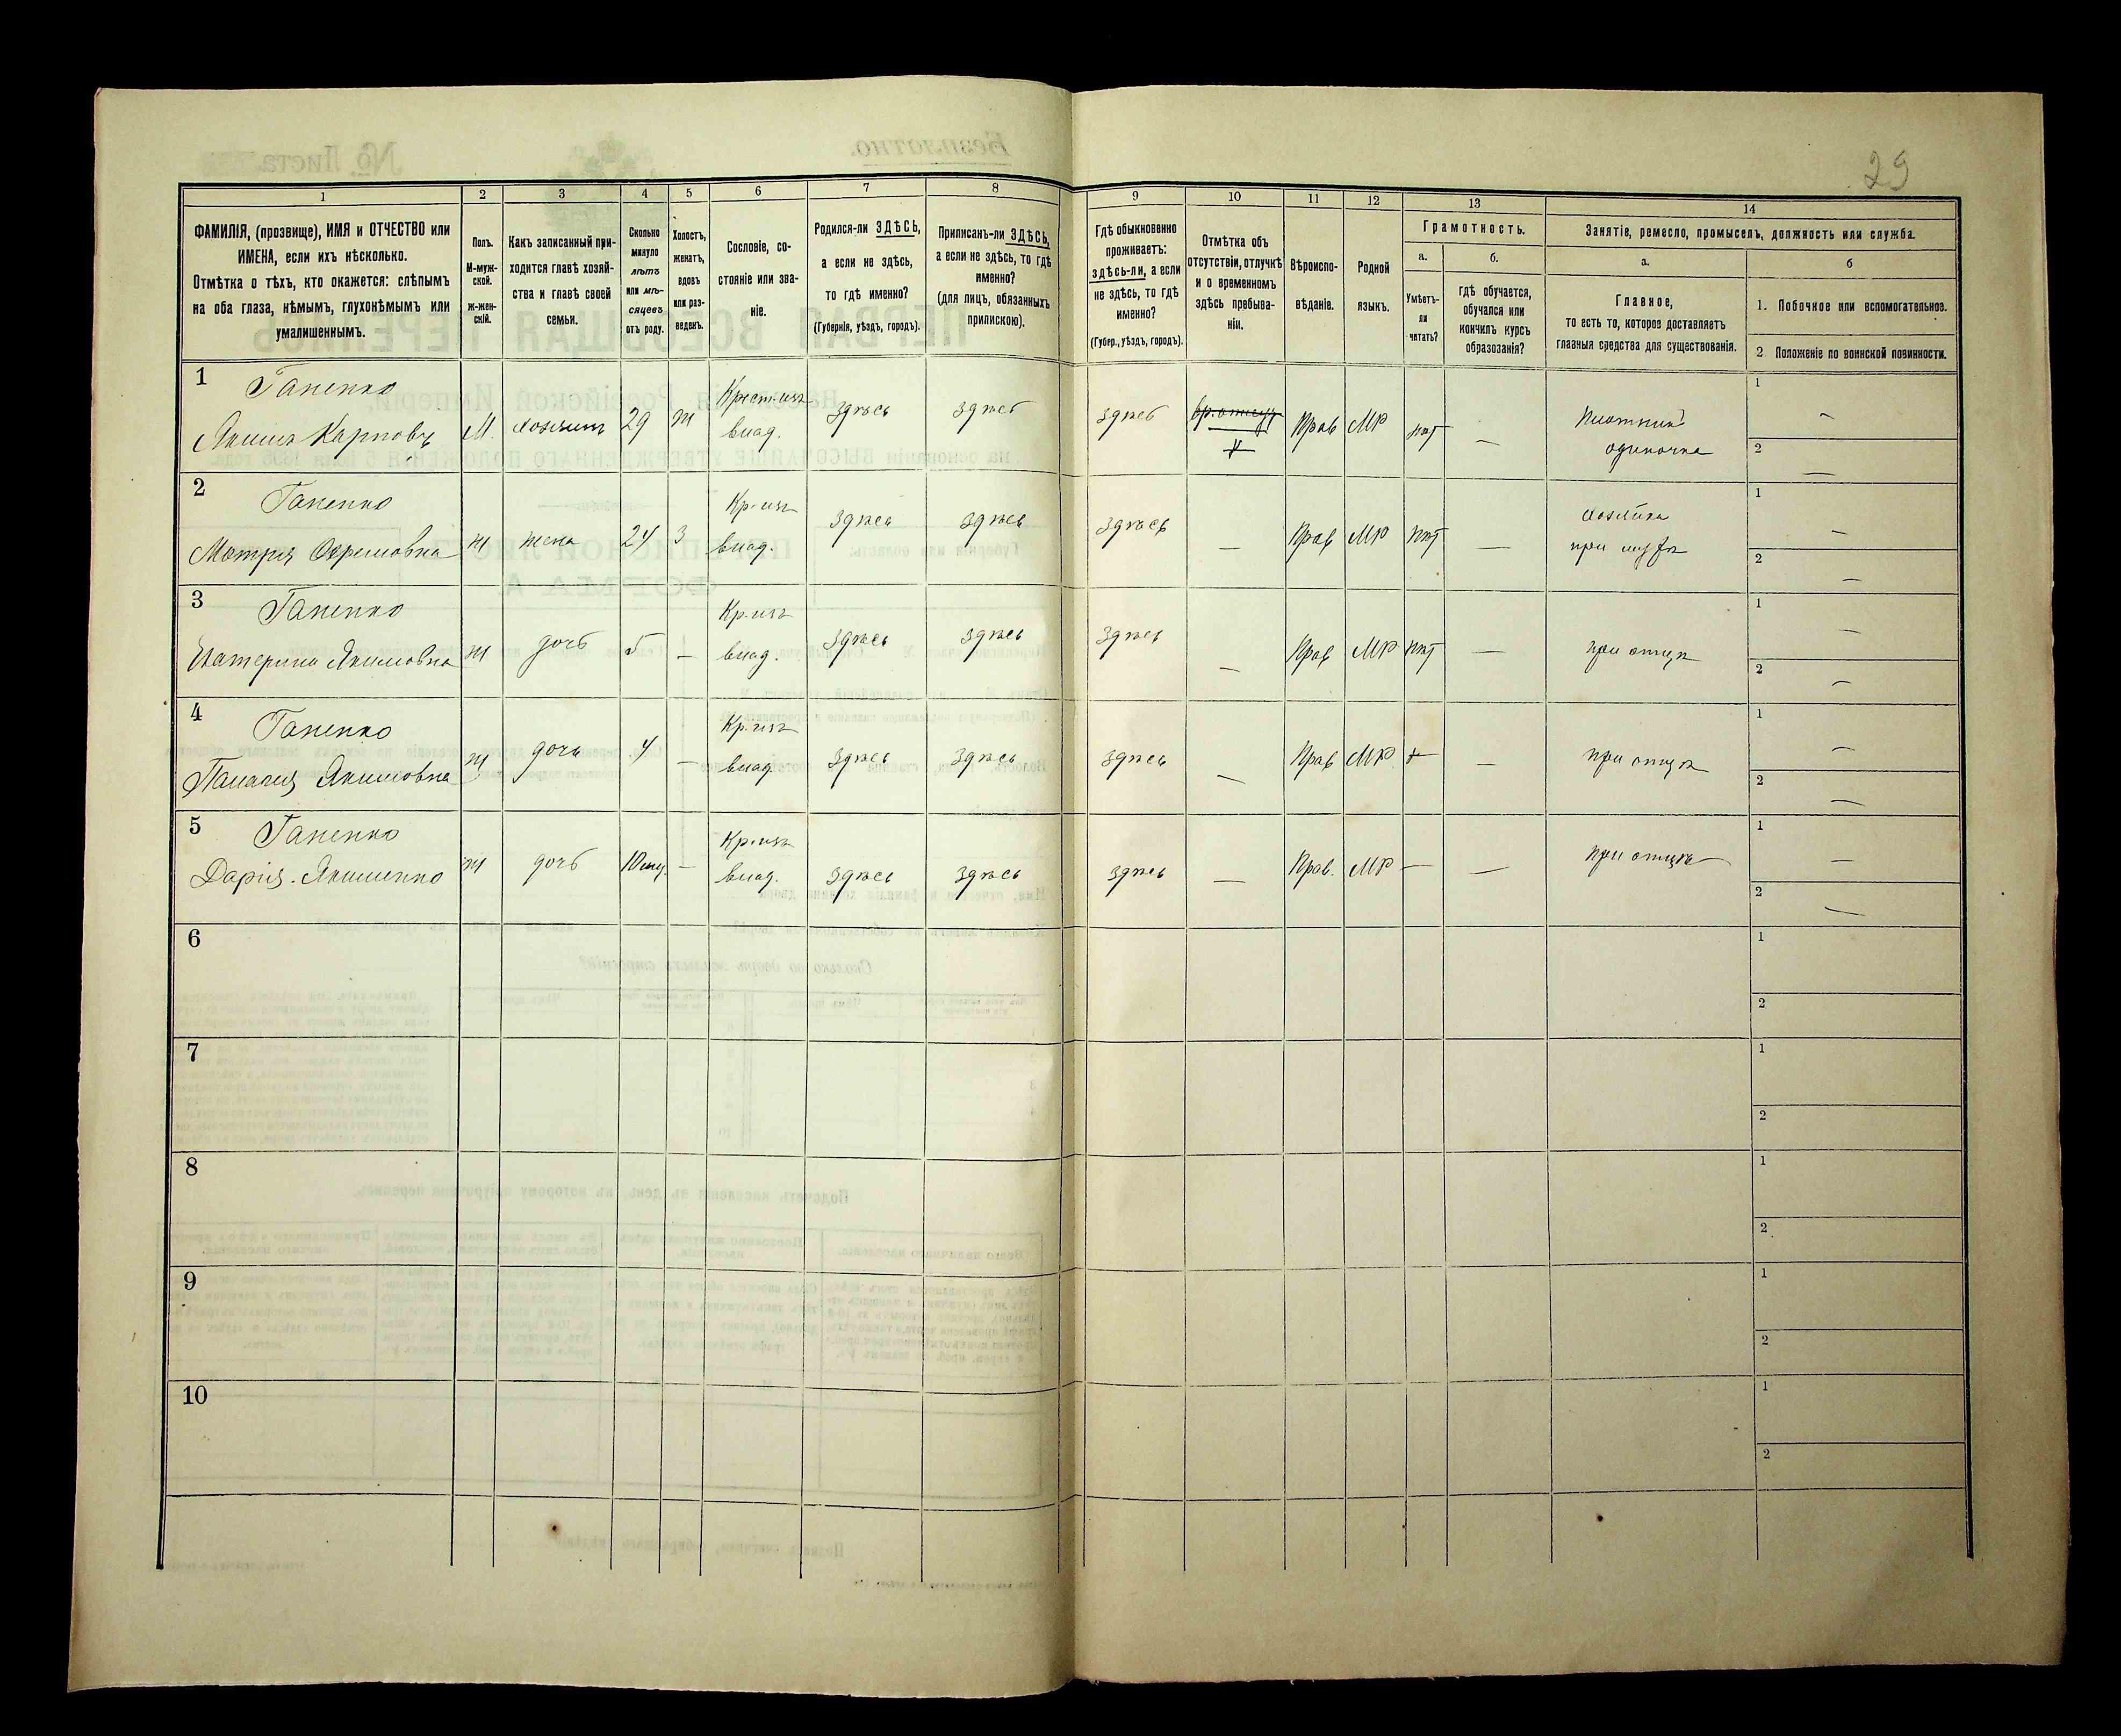 29
1
2
3
4
5
6
7
8
9
10
11
12
13
14
ФАМИЛІЯ, (прозвище), ИМЯ и ОТЧЕСТВО или
ИМЕНА, если ихъ нѣсколько.
Отмѣтка о тѣхъ, кто окажется: слѣпымъ
на оба глаза, нѣмымъ, глухонѣмымъ или
умалишеннымъ.
Полъ.
М-муж-
ской.
ж-жен-
скій.
Какъ записанный при-
ходится главѣ хозяй-
ства и главѣ своей
семьи.
Сколько
минуло
лѣтъ
или мѣ-
сяцевъ
отъ роду.
Холостъ,
женатъ,
вдовъ
или раз-
веденъ.
Сословіе, со-
стояніе или зва-
ніе.
Родился-ли ЗДѢСЬ,
а если не здѣсь,
то гдѣ именно?
(Губернія, уѣздъ, городъ).
Приписанъ-ли ЗДѢСЬ,
а если не здѣсь, то гдѣ
именно?
(для лицъ, обязанныхъ
припискою).
Гдѣ обыкновенно
проживаетъ:
здѣсь-ли, а если
не здѣсь, то гдѣ
именно?
(Губер., уѣздъ, городъ).
Отмѣтка объ
отсутствіи, отлучкѣ
и о временномъ
здѣсь пребыва-
ніи.
Вѣроиспо-
вѣданіе.
Родной
языкъ.
Грамотность.
а.
Умѣетъ-
ли
читать?
б.
гдѣ обучается,
обучался или
кончилъ курсъ
образозанія?
Занятіе, ремесло, промыселъ, должность или служба.
а.
Главное,
то есть то, которое доставляетъ
главныя средства для существованія.
б
1. Побочное или вспомогательное.
2 Положеніе по воинской повинности.
1
Гапенко
Якимъ Карповъ
М.
хозяинъ
29
ж
Крест. изъ
влад.
здѣсь
здѣсь
здѣсь
Прав
МР
нѣт
—
Плотникъ
одиночка
1
—
2
—
2
Гапенко
Мотря
ж
жена
24
З
Кр. изъ
влад.
здѣсь
здѣсь
здѣсь
—
Прав
МР
нѣт
—
хозяйка
при мужѣ
1
—
2
—
3
Гапенко
Екатерина Якимовна
ж
дочь
5
—
Кр. изъ
влад.
здѣсь
здѣсь
здѣсь
—
Прав
МР
нѣт
—
при отцѣ
1
—
2
—
4
Гапенко
Палагия Якимовна
ж
дочь
4
—
Кр. изъ
влад.
здѣсь
здѣсь
здѣсь
—
Прав
МР
—
при отцѣ
1
—
2
—
5
Гапенко
Дарія Якименко
ж
дочь
10 мѣс.
—
Кр. изъ
влад.
здѣсь
здѣсь
здѣсь
—
Прав.
МР
—
—
при отцѣ
1
—
2
—
6
1
2
7
1
2
8
1
2
9
1
2
10
1
2